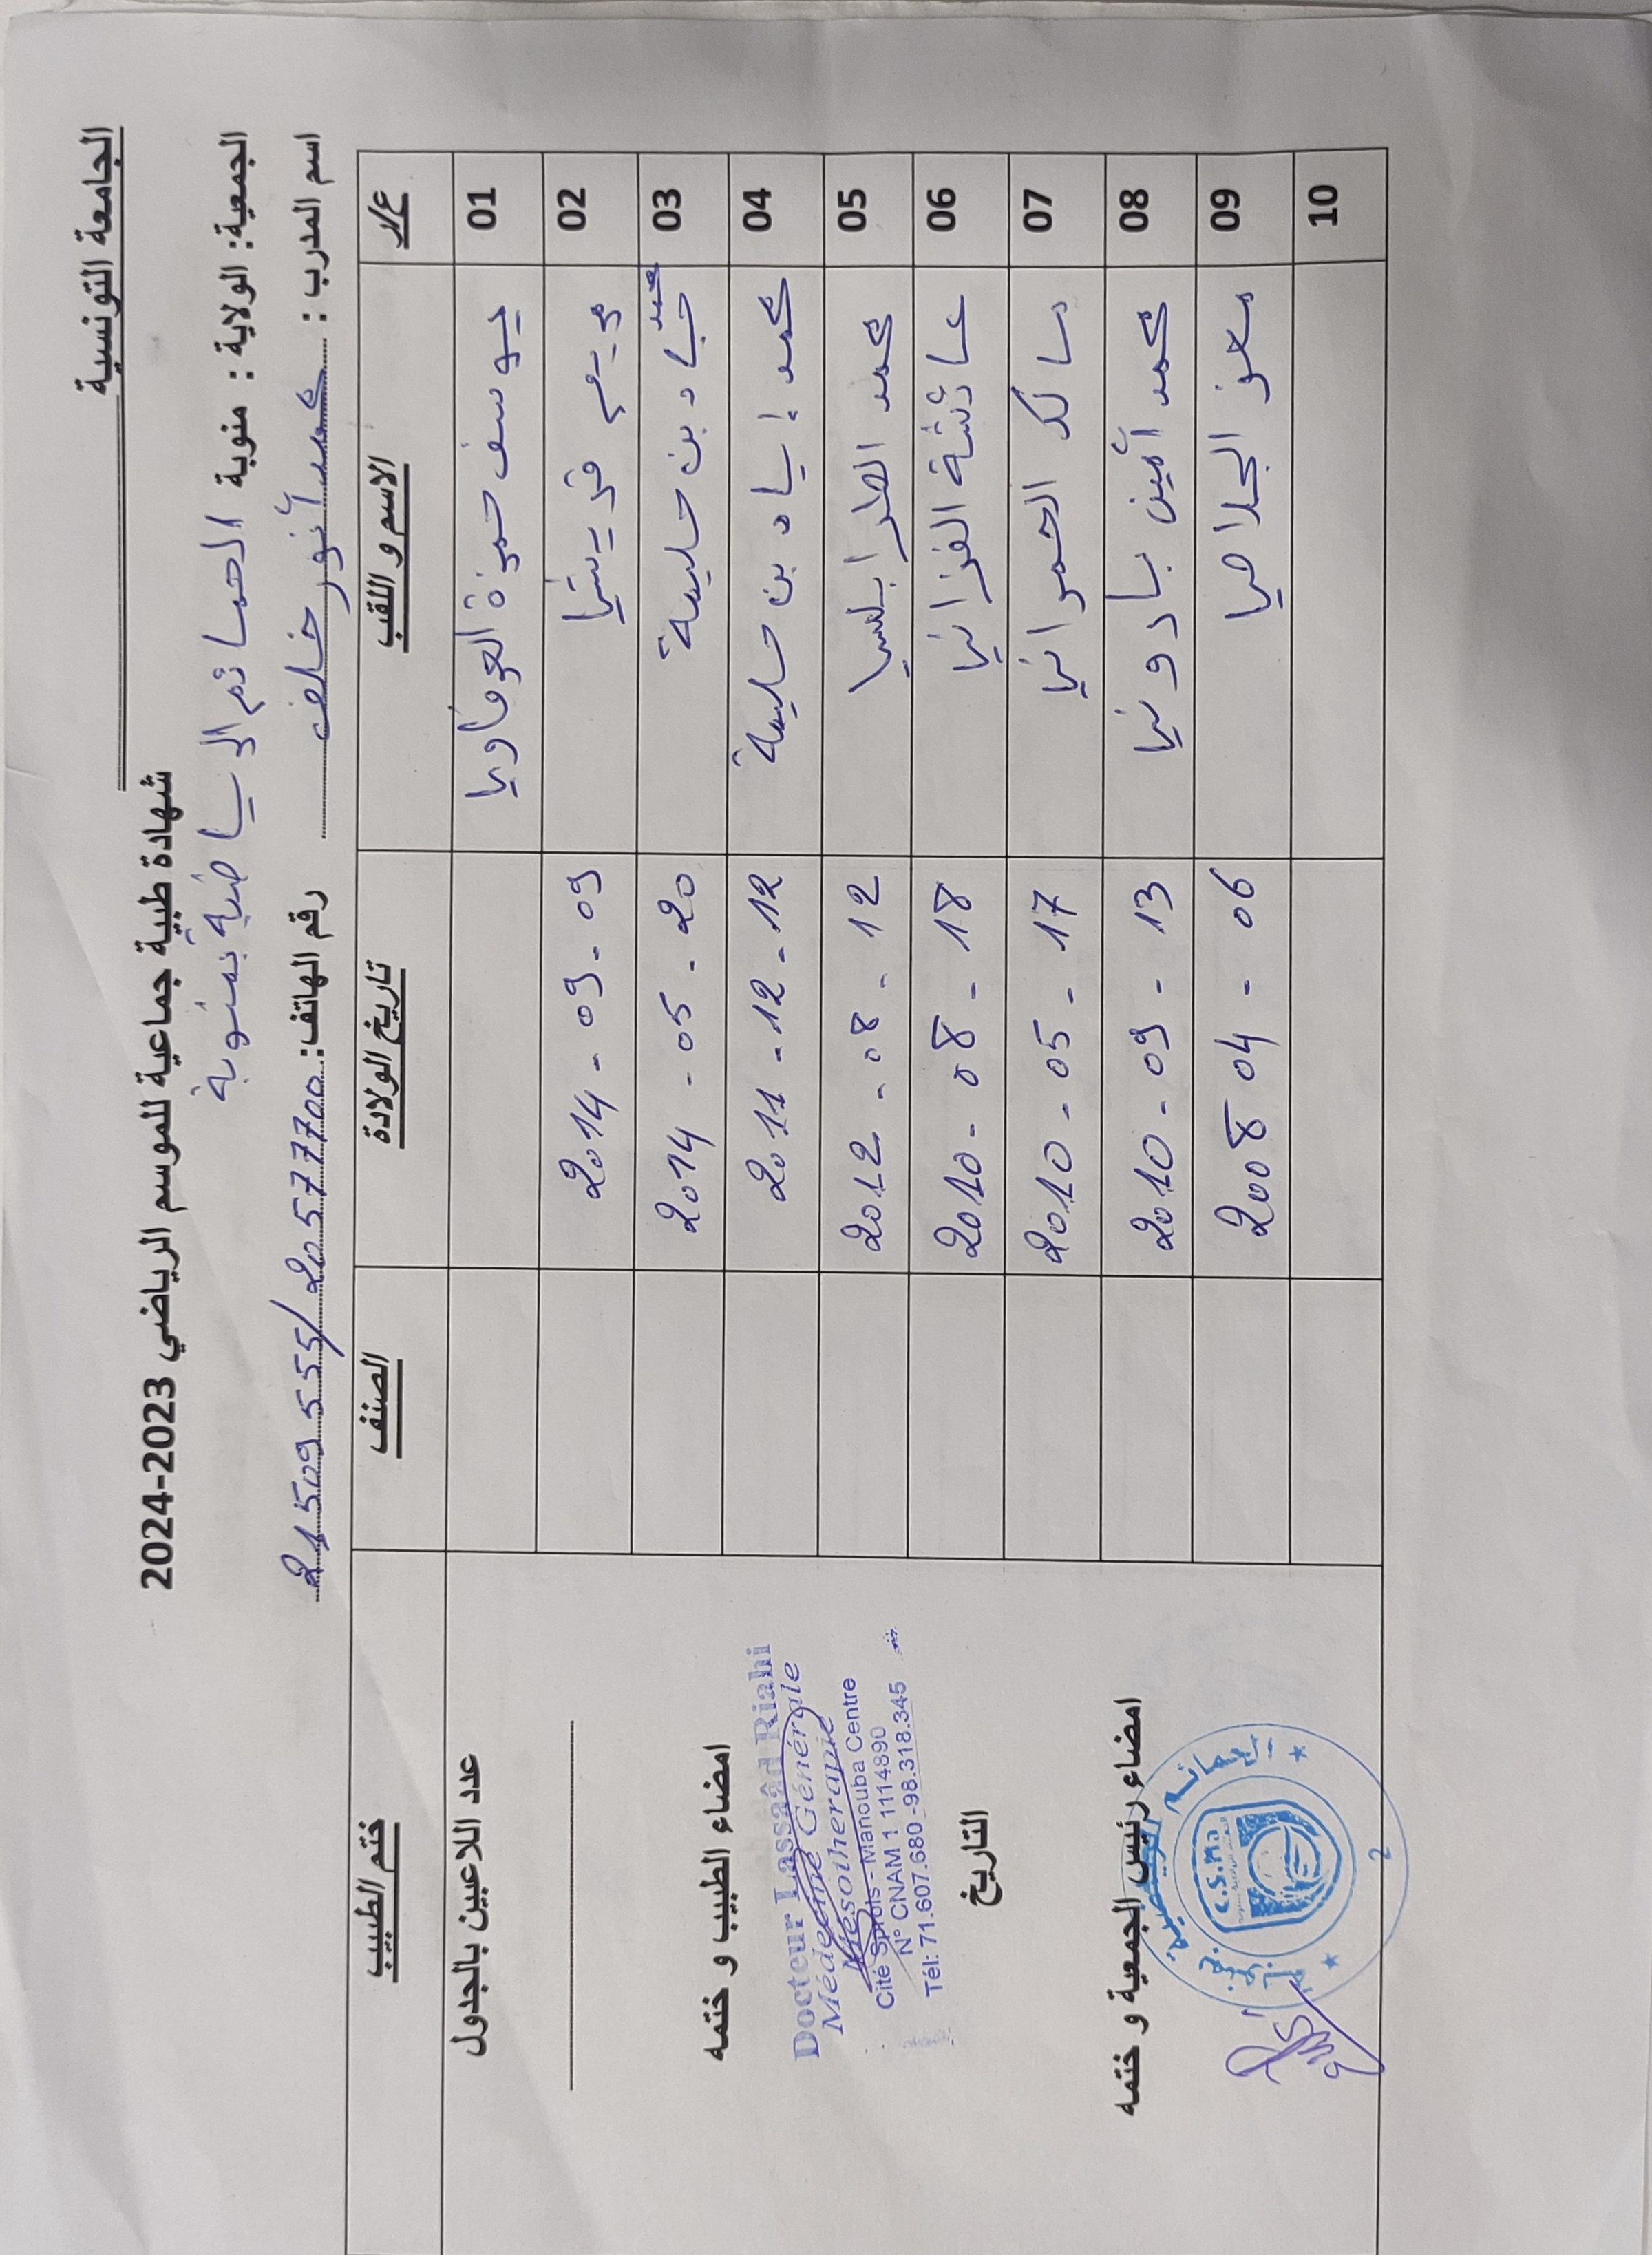 الجامعة التونسية
شهادة طبية جماعية للموسم الرياضي 2023-2024
الجمعية: الولاية : منوبة الحمائم الرياضية بمنوبة
اسم المدرب : محمد أنور خلف رقم الهاتف: 21509555/20577700
ع/ر الاسم و اللقب تاريخ الولادة الصنف ختم الطبيب
01 يوسف حمزة
02 مريم قريشي 2014-09-09
03 محمد جياد بن حليمة 2014-05-20
04 محمد إياد بن حليمة 2011-12-12
05 محمد الطرابلسي 2012-08-12
06 عائشة الفزاني 2010-08-18
07 مالك الحمراني 2010-05-17
08 محمد أمين بادوني 2010-09-13
09 معز الجلاصي 2008 04-06
10
عدد اللاعبين بالجدول
امضاء الطبيب و ختمه
Docteur Lassaâd Riahi
Médecine Générale
Mésothérapie
Cité Sprols - Manouba Centre
N° CNAM 1 1114890
Tél: 71.607.680 -98.318.345
التاريخ
امضاء رئيس الجمعية و ختمه
C.S.Ma
2